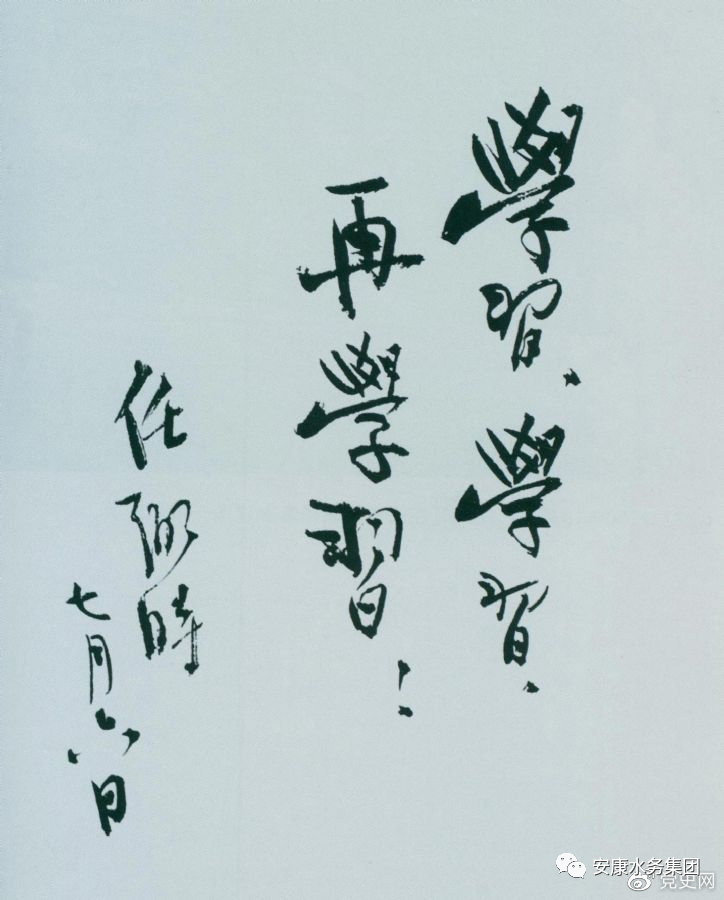 學習、學習、
再學習！
任弼時
七月六日
安康水务集团
党史网